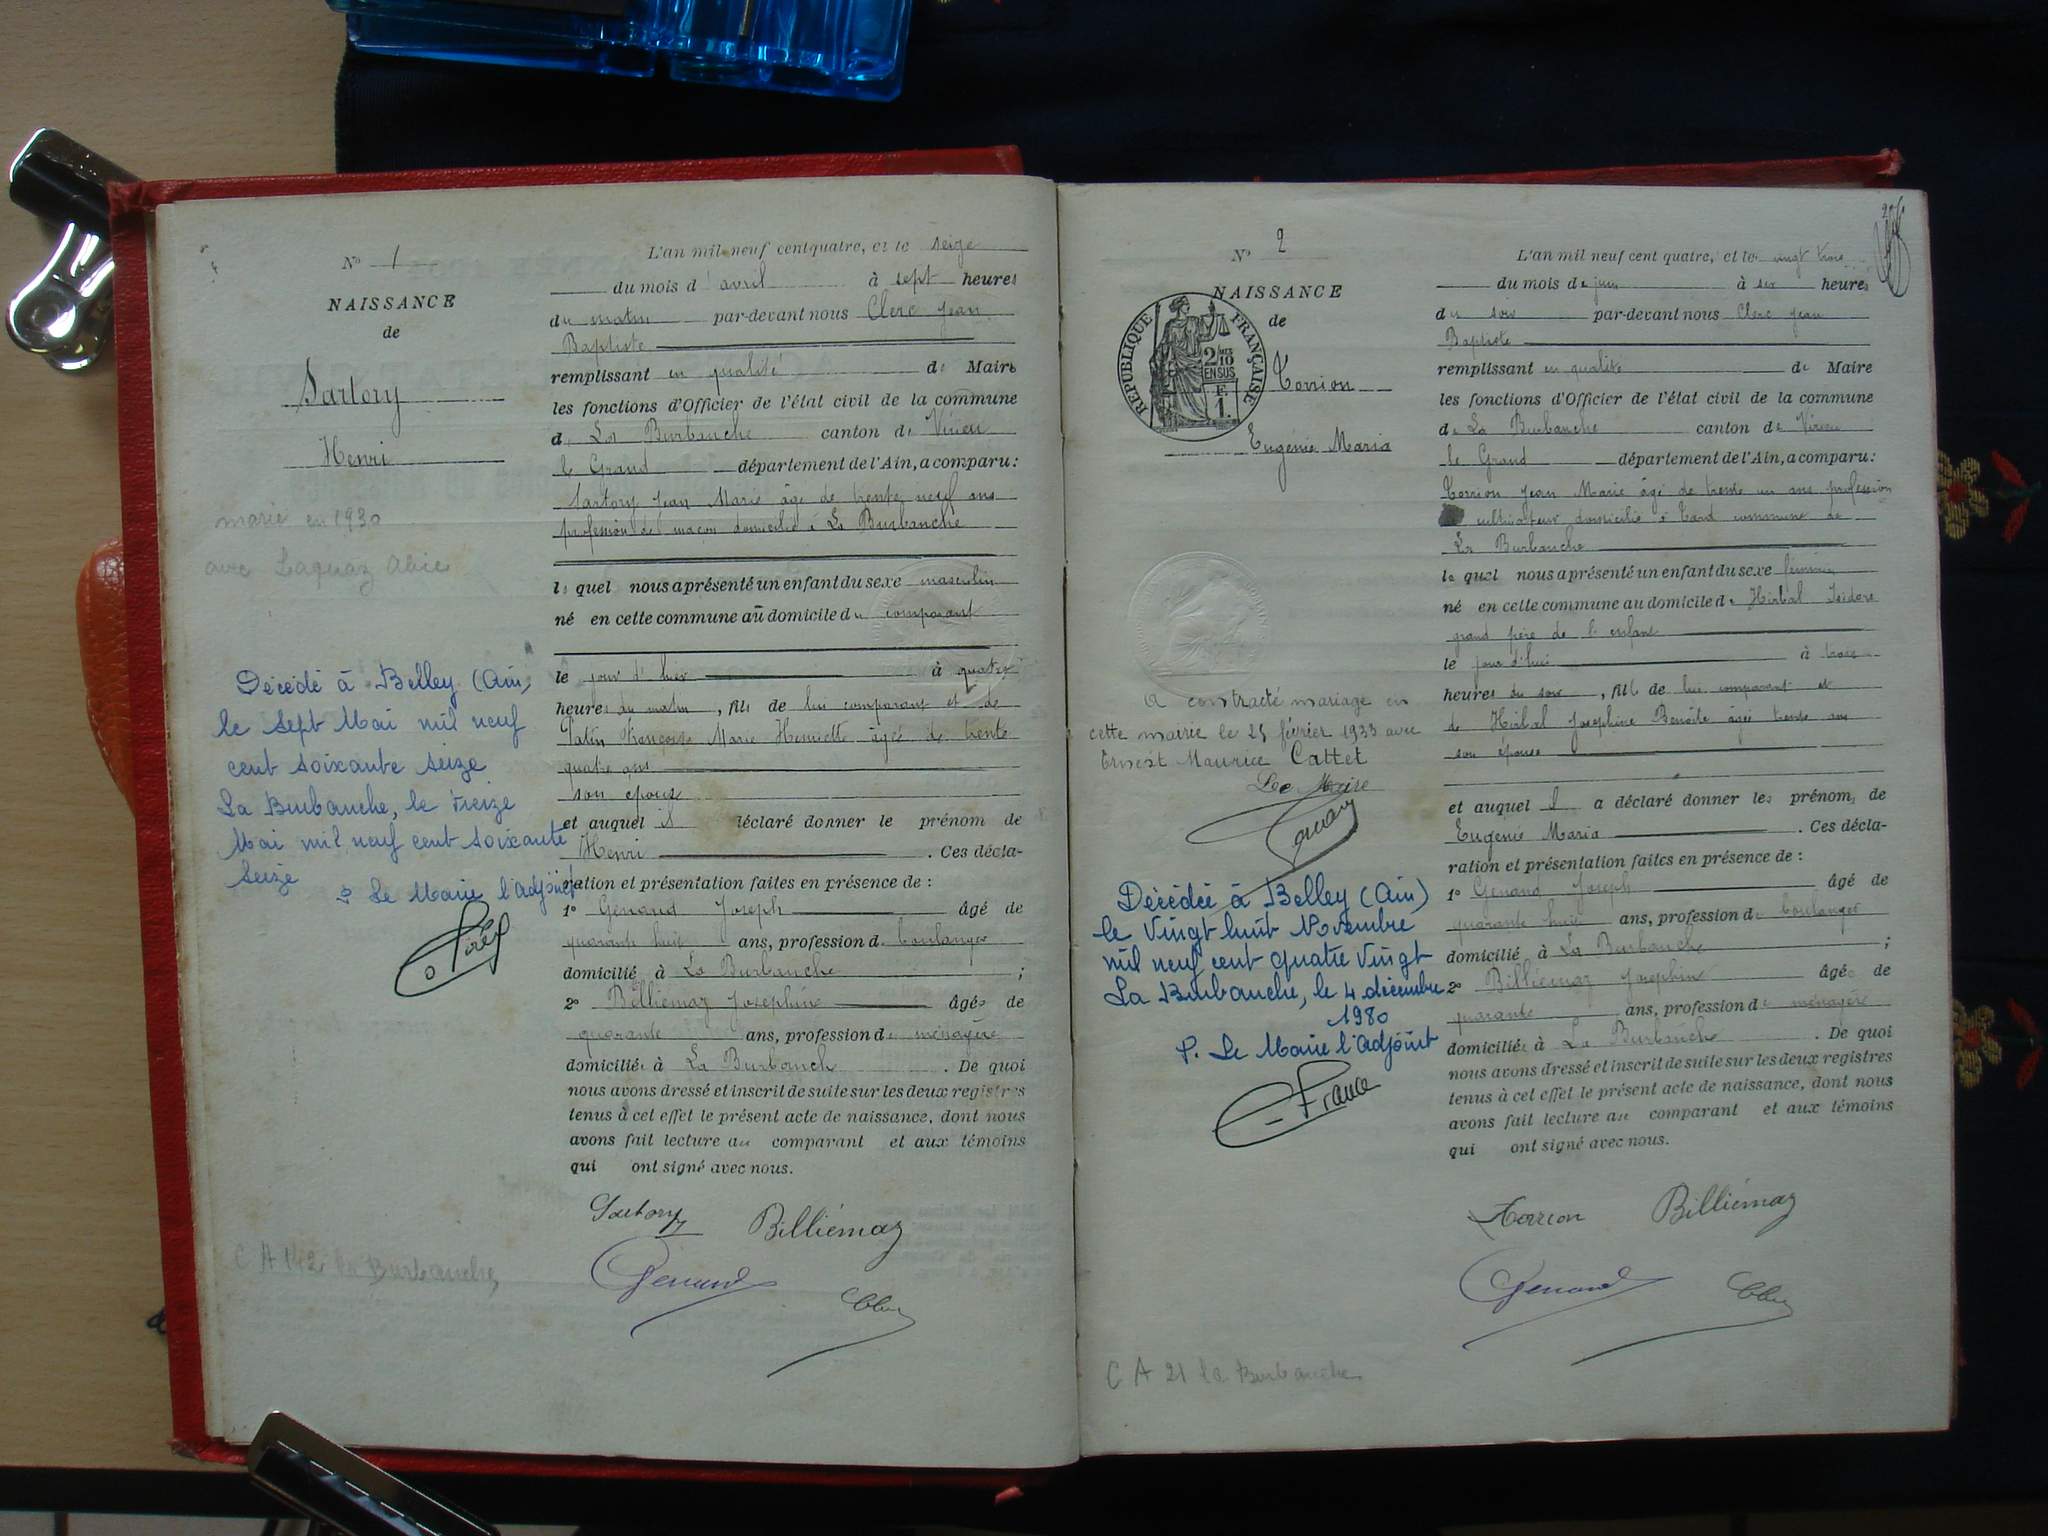 N° 1
NAISSANCE
de
Sartory
Henri
marié en 1930
avec Laguaz Alice
Décédé à Belley (Ain)
le sept Mai mil neuf
cent soixante seize
La Burbanche, le Treize
Mai mil neuf cent soixante
seize
P. Le Maire l'adjoint
C A 142 la Burbanche
L'an mil neuf cent quatre, et le seize
du mois d'avril à sept heures
du matin par-devant nous Clerc Jean
Baptiste
remplissant en qualité de Maire
les fonctions d'Officier de l'état civil de la commune
de La Burbanche canton de Virieu
le Grand département de l'Ain, a comparu :
Sartory Jean Marie âgé de trente neuf ans
profession de maçon domicilié à La Burbanche
le quel nous a présenté un enfant du sexe masculin
né en cette commune au domicile du comparant
le jour d'hier à quatre
heures du matin, fils de lui comparant et de
Patin Françoise Marie Henriette âgée de trente
quatre ans
son épouse
et auquel il déclaré donner le prénom de
Henri. Ces décla-
ration et présentation faites en présence de :
1° Genaud Joseph âgé de
quarante huit ans, profession de boulanger
domicilié à La Burbanche ;
2° Billiémaz Joséphine âgée de
quarante ans, profession de ménagère
domiciliée à La Burbanch. De quoi
nous avons dressé et inscrit de suite sur les deux registres
tenus à cet effet le présent acte de naissance, dont nous
avons fait lecture au comparant et aux témoins
qui ont signé avec nous.
Sartory Billiémaz
Genaud Clerc
N° 2
NAISSANCE
de
REPUBLIQUE FRANÇAISE
2/10 EN SUS
F 1.
Torrion
Eugénie Maria
A contracté mariage en
cette mairie le 25 février 1933 avec
Ernest Maurice Cattet
Le Maire
Décédée à Belley (Ain)
le Vingt huit Novembre
mil neuf cent quatre vingt
La Burbanche, le 4 décembre
1980
P. Le Maire l'adjoint
France
C A 21 la Burbanche
L'an mil neuf cent quatre, et le vingt trois
du mois de juin à six heures
du soir par-devant nous Clerc Jean
Baptiste
remplissant en qualité de Maire
les fonctions d'Officier de l'état civil de la commune
de La Burbanche canton de Virieu
le Grand département de l'Ain, a comparu :
Torrion Jean Marie âgé de trente un ans profession
cultivateur domicilié à commune de
La Burbanche
le quel nous a présenté un enfant du sexe féminin
né en cette commune au domicile de Hirbal Isidore
grand père de l'enfant
le jour d'hui à trois
heures du soir, fille de lui comparant et
de Hirbal Joséphine Benoite âgée trente ans
son épouse
et auquel il a déclaré donner les prénoms de
Eugénie Maria. Ces décla-
ration et présentation faites en présence de :
1° Genaud Joseph âgé de
quarante huit ans, profession de boulanger
domicilié à La Burbanche ;
2° Billiémaz Joséphine âgée de
quarante ans, profession de ménagère
domiciliée à La Burbanche. De quoi
nous avons dressé et inscrit de suite sur les deux registres
tenus à cet effet le présent acte de naissance, dont nous
avons fait lecture au comparant et aux témoins
qui ont signé avec nous.
Torrion Billiémaz
Genaud Clerc